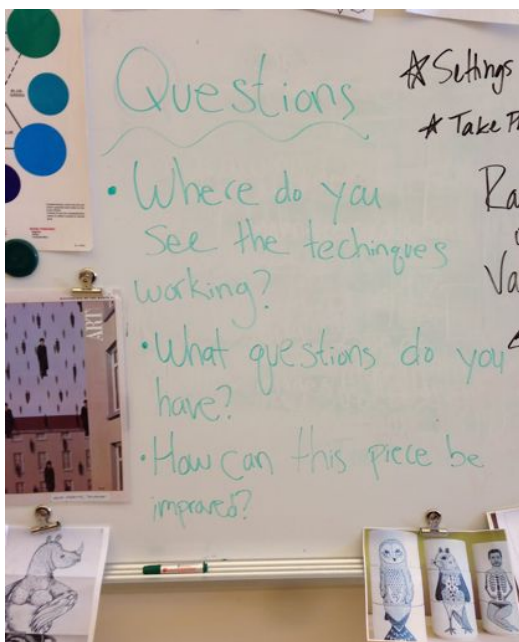 Questions
• Where do you
see the techinques
working?
• What questions do you
have?
• How can this piece be
improved?
☆ Settings
☆ Take
Ra
Va
ART